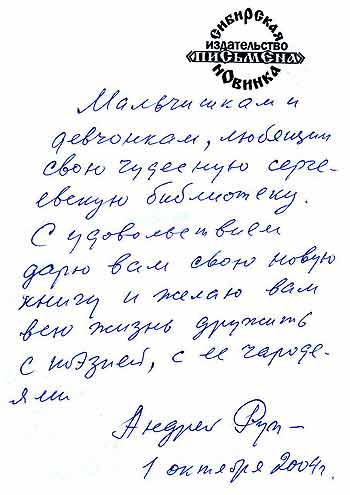 СИБИРСКАЯ
ИЗДАТЕЛЬСТВО
«ПИСЬМЕНА»
НОВИНКА
Мальчишкам и
девчонкам, любящим
свою чудесную серге-
евскую библиотеку.
С удовольствием
дарю вам свою новую
книгу и желаю вам
всю жизнь дружить
с поэзией, с ее чароде-
ями
Андрей
1 октября 2004г.